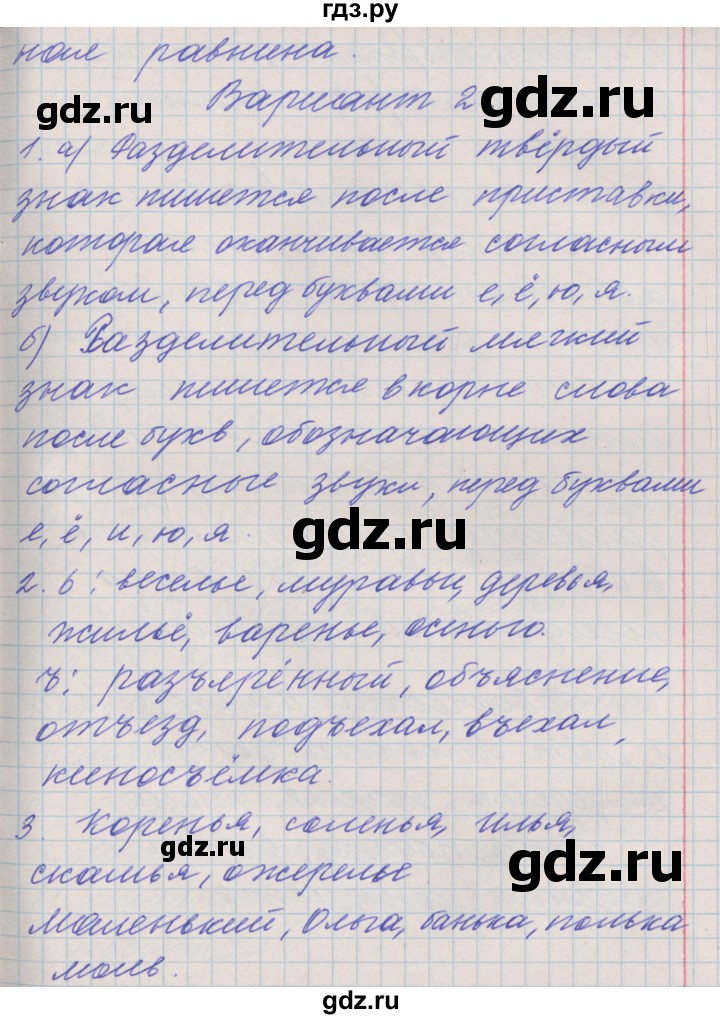 гдз.ру
ная равнина.
Вариант 2
gdz.ru
gdz.ru
1. а) Разделительный твёрдый
знак пишется после приставки,
которая оканчивается согласным
звуком, перед буквами е, ё, ю, я.
б) Разделительный мягкий
знак пишется в корне слова
после букв, обозначающих
согласные звуки, перед буквами
е, ё, и, ю, я.
gdz.ru
2. ь: веселье, муравьи, деревья,
жильё, варенье, осенью.
ъ: разъярённый, объяснение,
отъезд, подъехал, въехал,
киносъёмка.
3. Коренья, соленья, Илья,
gdz.ru
gdz.ru
скамья, ожерелье
Маленький, Ольга, банька, полька
моль.
gdz.ru